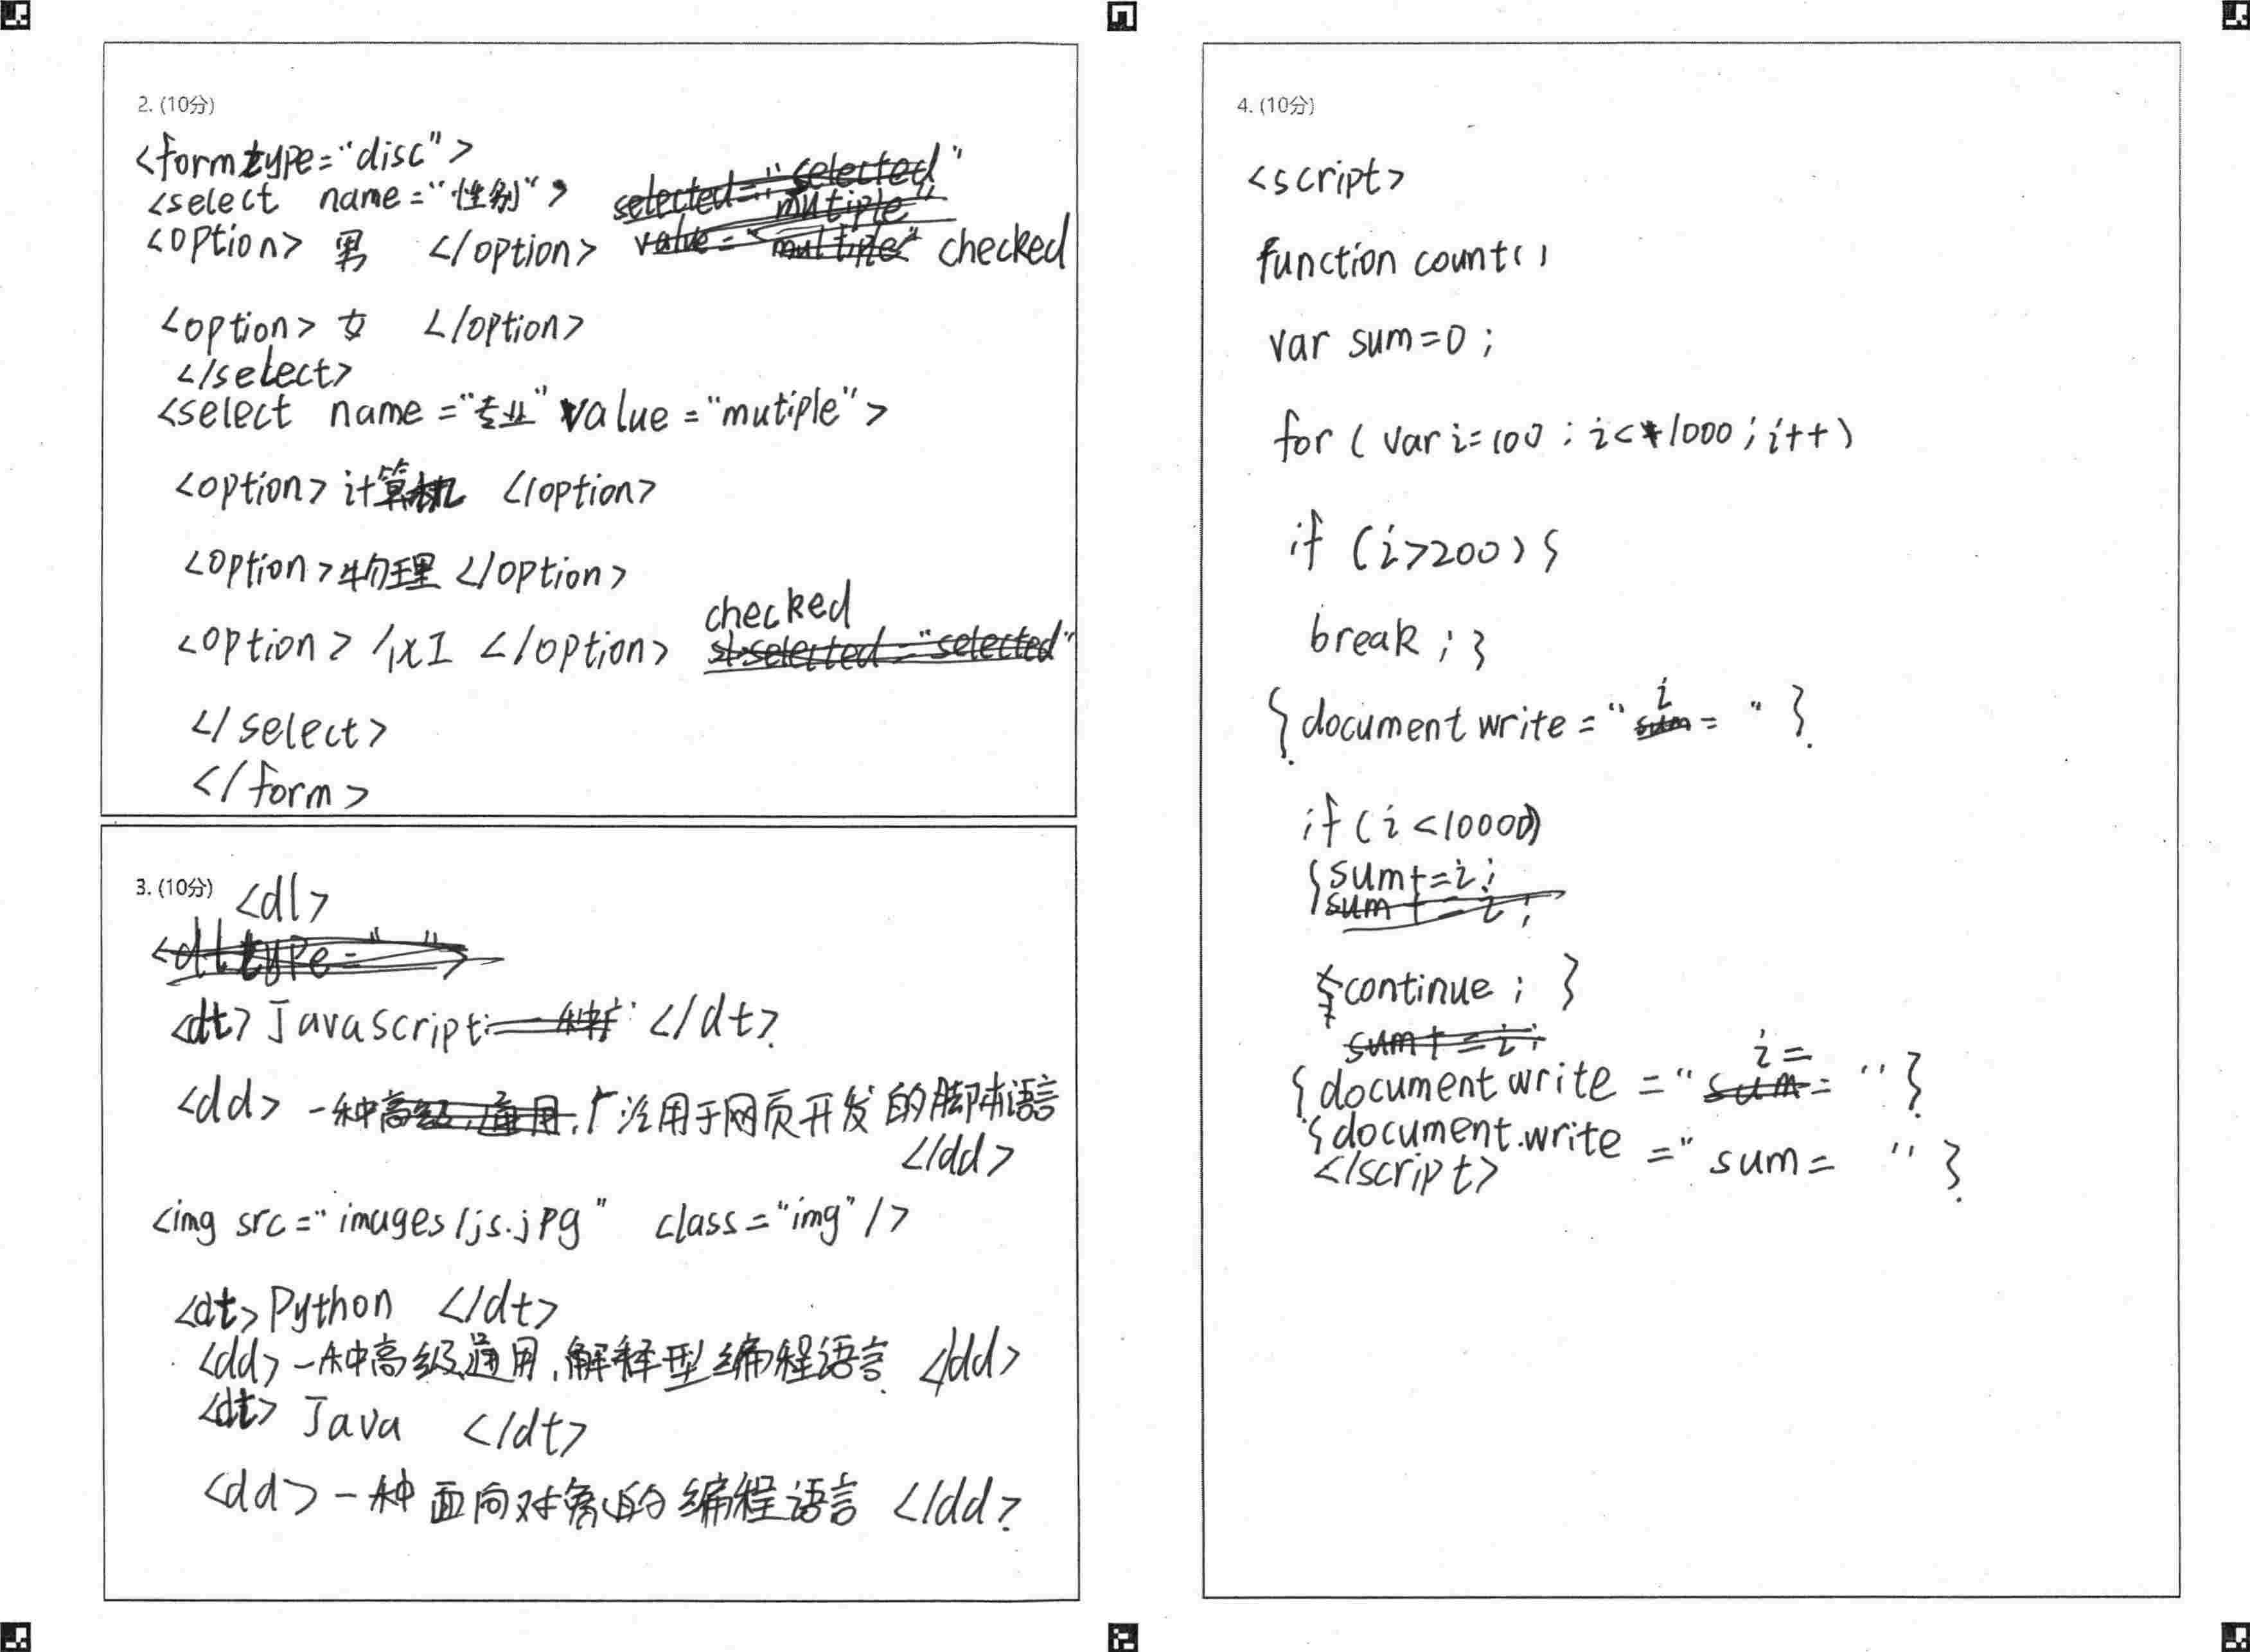 2. (10分)
<form type="disc">
<select name="性别">
<option> 男 </option> checked
<option> 女 </option>
</select>
<select name="专业" value="mutiple">
<option> 计算机 </option>
<option> 物理 </option>
checked
<option> 化工 </option>
</select>
</form>
3. (10分) <dl>
<dt> Javascript: </dt>
<dd> 一种广泛用于网页开发的脚本语言
</dd>
<img src="images/js.jpg" class="img"/>
<dt> Python </dt>
<dd> 一种高级,通用,解释型编程语言 </dd>
<dt> Java </dt>
<dd> 一种面向对象的编程语言 </dd>
4. (10分)
<script>
function count()
var sum=0;
for (var i=100; i<1000; i++)
if (i>200) {
break; }
{document write=" i = " }
if (i<10000)
{sum+=i;
continue; }
{document write =" i= "}
{document.write =" sum= "}
</script>